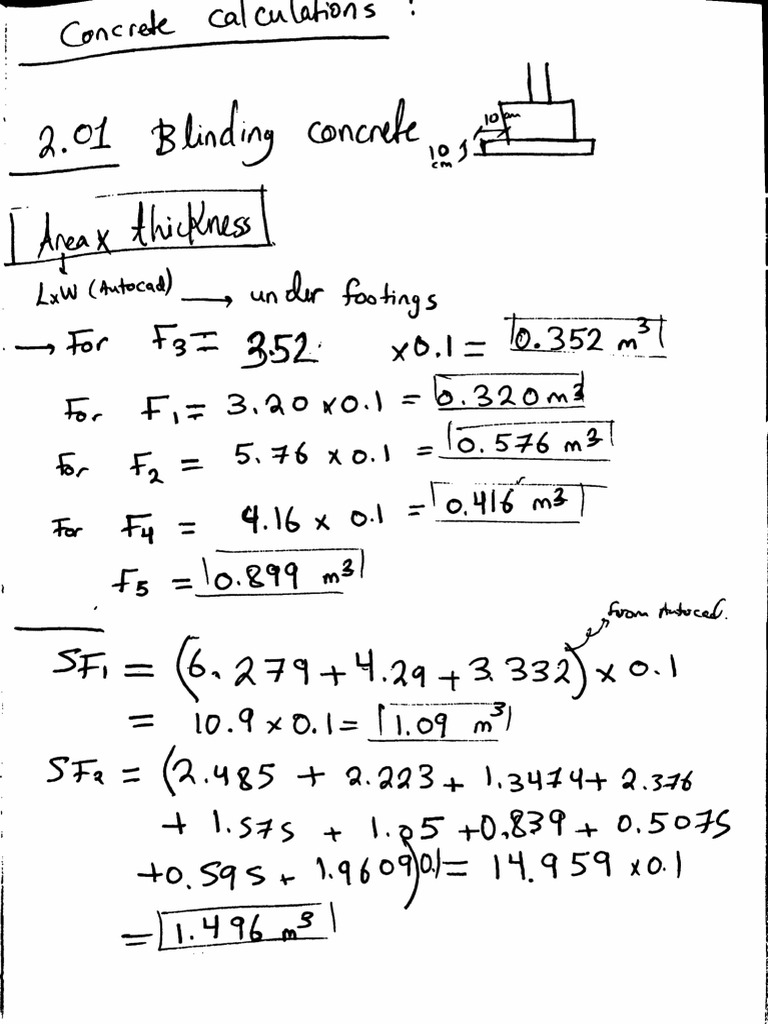 Concrete calculations :
2.01 Blinding concrete
10 cm
10 cm
Area x thickness
LxW (Autocad) → under footings
→ For F3 = 3.52 x0.1 = 0.352 m3
For F1 = 3.20 x0.1 = 0.320 m3
For F2 = 5.76 x 0.1 = 0.576 m3
For F4 = 4.16 x 0.1 = 0.416 m3
F5 = 0.899 m3
from Autocad.
SF1 = (6.279 + 4.29 + 3.332) x 0.1
= 10.9 x 0.1 = 1.09 m3
SF2 = (2.485 + 2.223 + 1.3474 + 2.376
+ 1.575 + 1.05 + 0.839 + 0.5075
+0.595 + 1.9609)0.1 = 14.959 x0.1
= 1.496 m3